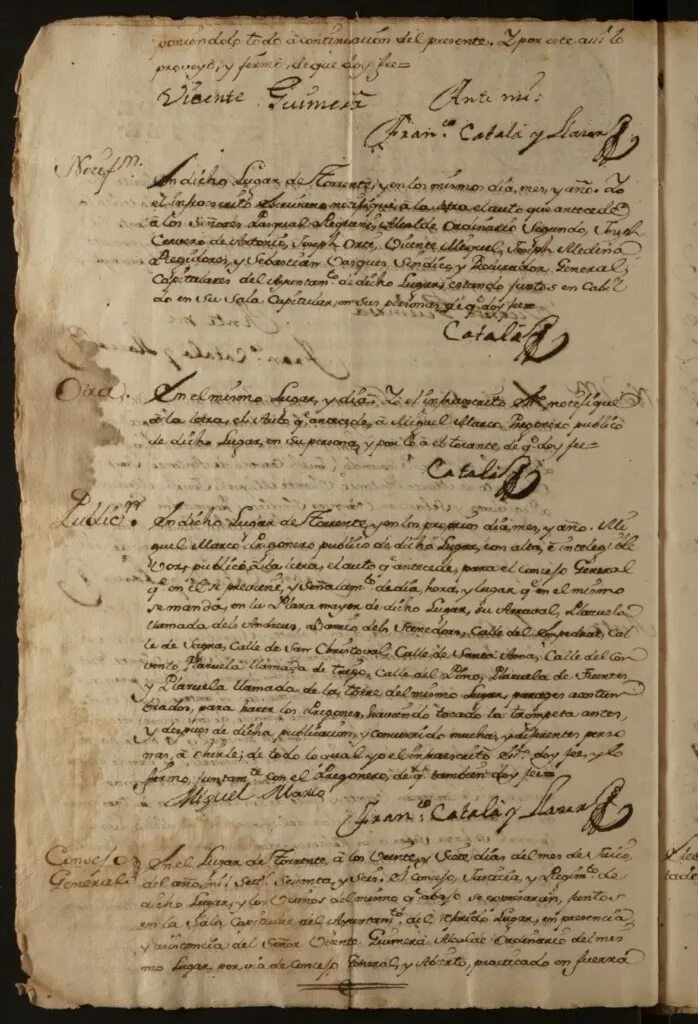 poniendolo todo à continuacion del presente. Y por este assi lo
proveyó, y firmó, de que doy fee=
Vicente Guimerà Ante mi:
Fran.co Català y Llacer
Notif.n
En dicho Lugar de Torrente, y en los mismos dia, mes, y año. Yo
el infraescrito escrivano notifiqué, à la letra el auto que antecede
à los Señores Pasqual Alcalde Ordinario Segundo, Joseph
Cervero de Antonio, Joseph Orti, Vicente Miquel, Joseph Medina
Regidores, y Sebastian Vasques Sindico, y Procurador General,
Capitulares del Ayuntam.to de dicho Lugar, estando juntos en Cabil
do en su Sala Capitular, en sus personas, de q.e doy fee=
Català
Otra.
En el mismo Lugar, y dia. Yo el infraescrito notifiqué
à la letra, el Auto q.e antecede, à Miguel Marco, Pregonero publico
de dicho Lugar, en su persona, y por lo à el tocante, de q.e doy fee=
Català
Public.n
En dicho Lugar de Torrente, y en los proprios dia, mes, y año. Mi
guel Marco, Pregonero publico de dicho Lugar, con alta, è inteligible
voz, publicó, à la letra, el auto q.e antecede, para el Concejo General
q.e en el se previene, y señalam.to de dia, hora, y lugar q.e en el mismo
se manda, en la Plaza mayor de dicho Lugar, su Arraval, Plazuela
llamada dels Andreus, Barrio dels Calle del Cal
le de Sagra, Calle de San Christoval, Calle de Santa Anna, Calle del Con
vento, Plazuela llamada de Calle del Pino, Plazuela de Fuentes
y Plazuela llamada de la torre del mismo Lugar, parages acostum
brados, para hazer los Pregones, haviendo tocado la trompeta antes,
y despues de dicha publicacion, y concurrido muchas, y diferentes perso
nas, à ohirle; de todo lo qual yo el infraescrito doy fee, y lo
firmo, juntam.te con el Pregonero, de q.e tambien doy fee=
Miguel Marco
Fran.co Català y Llacer
Concejo
General
En el Lugar de Torrente, à los Veinte, y Siete dias del mes de Julio,
del año mil Set.s Sesenta, y Seis. El Concejo, Justicia, y Regim.to de
dicho Lugar, y los Vecinos del mismo q.e abajo se expresaràn, juntos
en la Sala Capitular del Ayuntam.to del referido Lugar, en presencia,
y asistencia del Señor Vicente Guimerà, Alcalde Ordinario del mes
mo Lugar, por via de Concejo General, y Abierto, practicado en fuerza